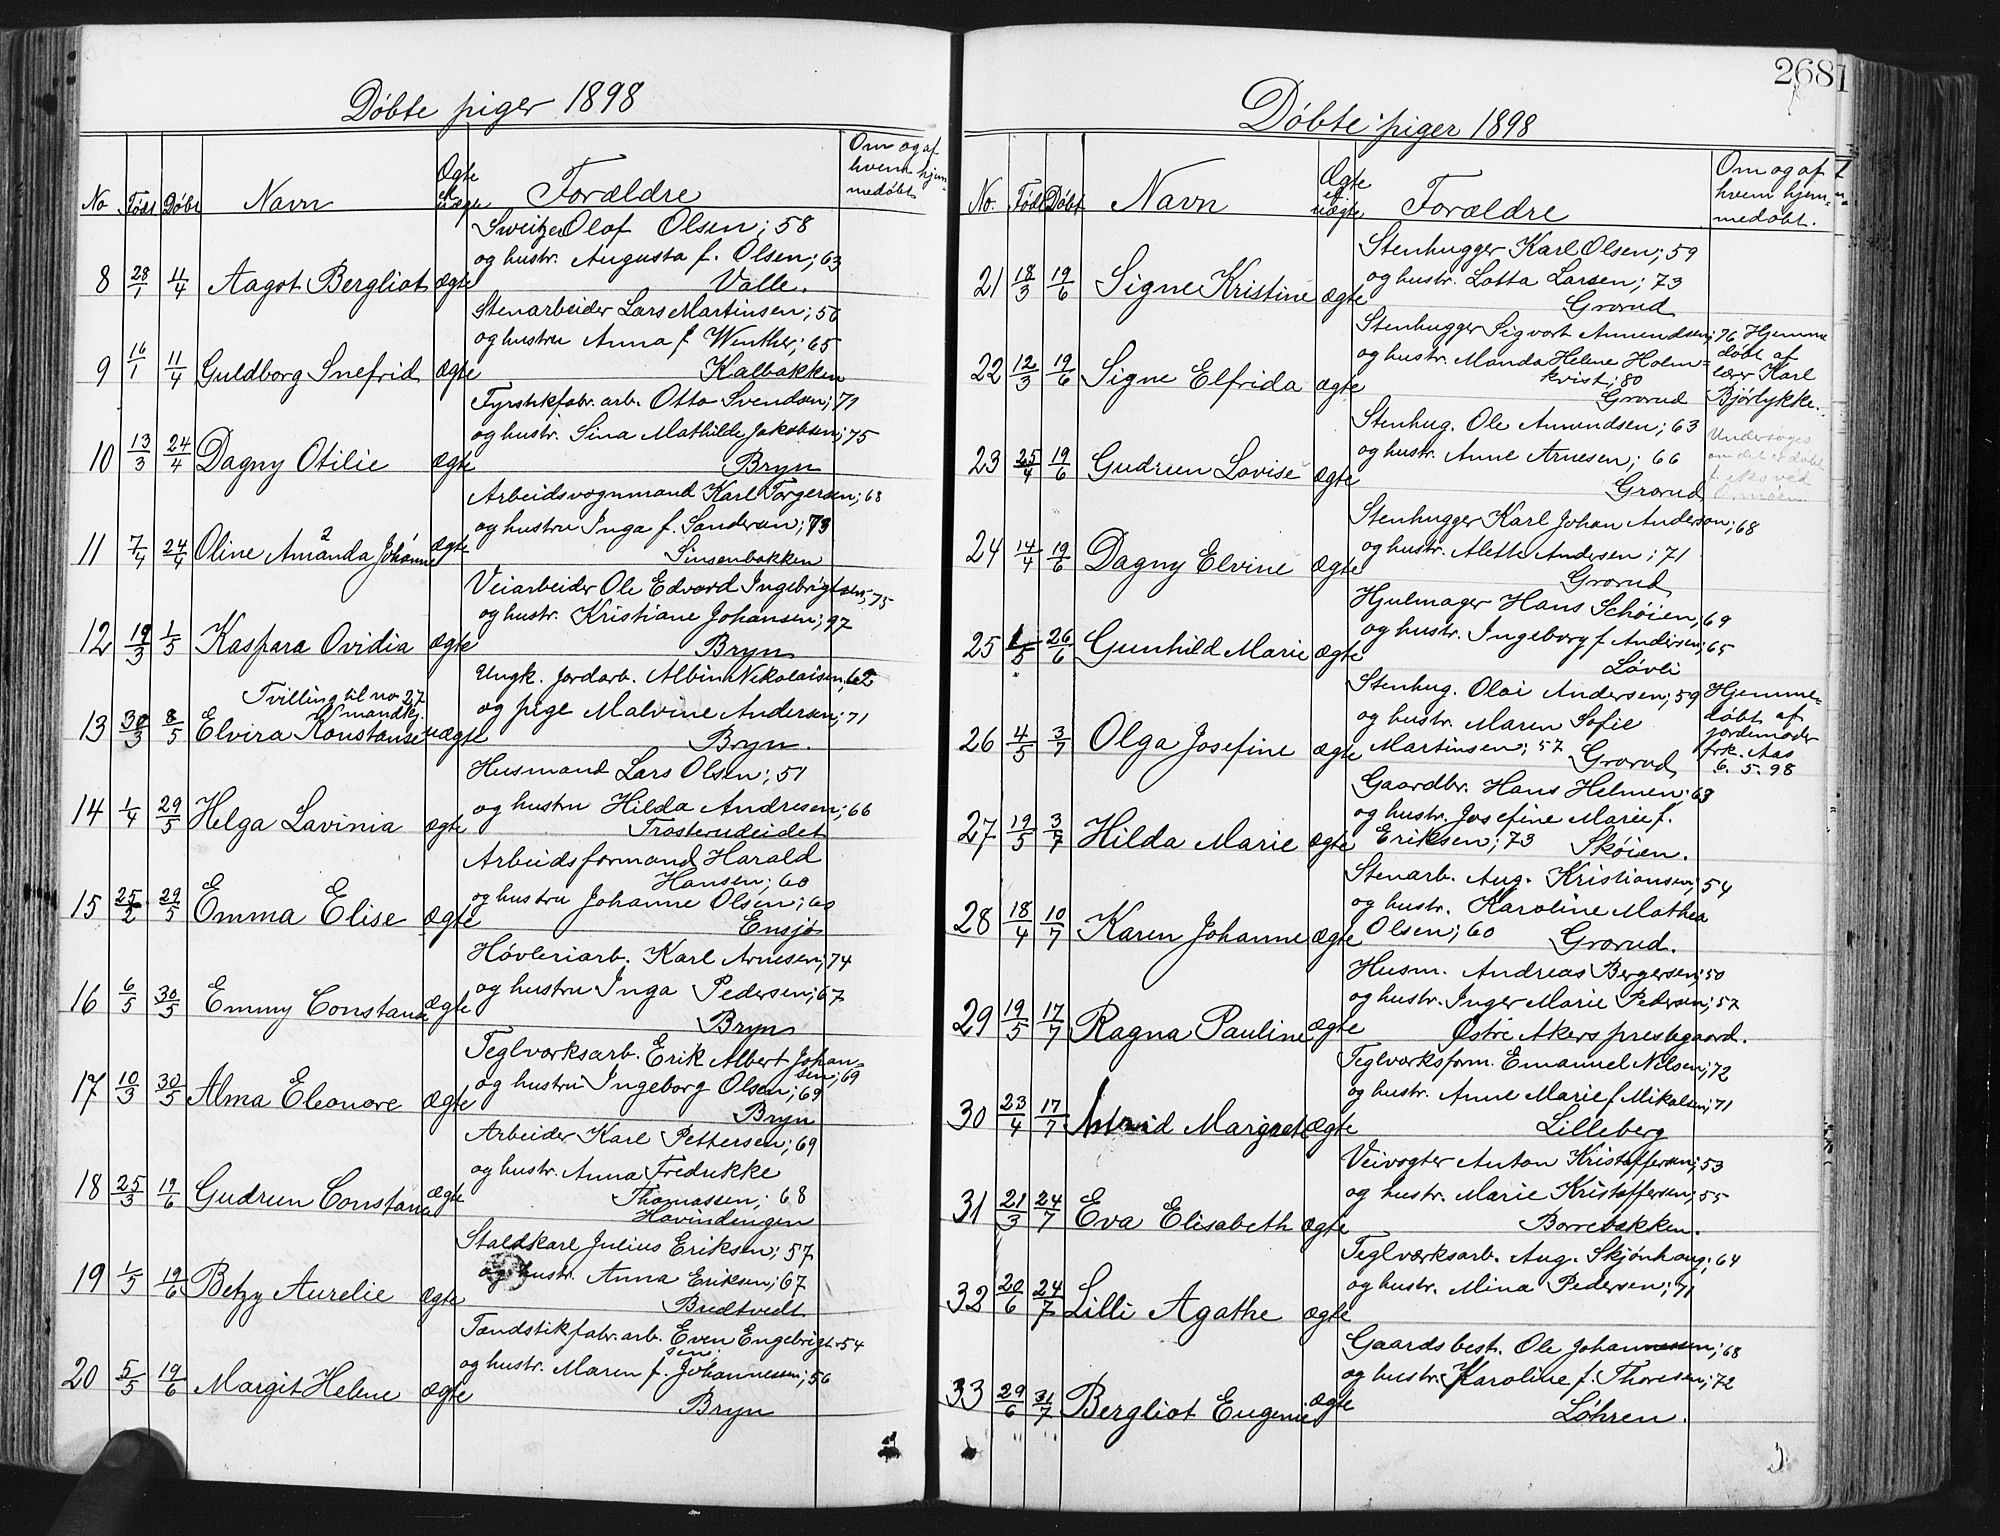 Døbte piger 1898
No Født Døbt Navn Ægte el. uægte Forældre Om og af hvem hjem-medøbt
Sweitzer Olaf Olsen; 58
og hustr. Augusta f. Olsen; 63
8 28/1 11/4 Aagot Bergliot ægte Valle.
Stenarbeider Lars Martinsen; 56
og hustru Anna f. Winther; 65
9 16/1 11/4 Guldborg Snefrid ægte Kalbakken
Fyrstikfabr. arb. Otto Svendsen; 71
og hustr. Sina Mathilde Jakobsen; 75
10 13/3 24/4 Dagny Otilie ægte Bryn
Arbeidsvognmand Karl Torgersen; 68
og hustru Inga f. Sandersen; 73
11 7/4 24/4 Oline Amanda Johanne ægte Sinsenbakken
Veiarbeider Ole Edvard Ingebrigtsen; 75
og hustr. Kristiane Johansen; 97
12 19/3 1/5 Kaspara Ovidia ægte Bryn
Ungk. jordarb. Albin Nikolaisen, 62
Tvilling til no 27
mandkj.
og pige Malvine Andersen; 71
13 30/3 8/5 Elvira Konstanse uægte Bryn.
Husmand Lars Olsen; 51
og hustru Hilda Andresen; 66
14 1/4 29/5 Helga Lavinia ægte Trosterudeidet
Arbeidsformand Harald
Hansen; 60
og hustru Johanne Olsen; 60
15 25/2 29/5 Emma Elise ægte Ensjø
Høvleriarb. Karl Arnesen; 74
og hustru Inga Pedersen; 67
16 6/5 30/5 Emmy Constance ægte Bryn
Teglværksarb. Erik Albert Johan-
sen; 69
og hustru Ingeborg Olsen; 69
17 10/3 30/5 Alma Eleonore ægte Bryn
Arbeider Karl Pettersen; 69
og hustr. Anna Fredrikke
Thomassen; 68
18 25/3 19/6 Gudrun Constance ægte Hovindengen
Staldkarl Julius Eriksen; 57
og hustr. Anna Eriksen; 67
19 1/5 19/6 Betzy Aurelie ægte Bredtvedt
Tændstikfabr. arb. Even Engebrigt- 54
sen.
og hustr. Maren f. Johannesen; 56
20 5/5 19/6 Margit Helene ægte Bryn
268
Døbte piger 1898
No. Født Døbt Navn Ægte el. uægte Forældre Om og af hvem hjem-medøbt.
Stenhugger Karl Olsen; 59
og hustr. Lotta Larsen; 73
21 18/3 19/6 Signe Kristine ægte Grorud
Stenhugger Sigvart Amundsen; 76 Hjemme
og hustr. Manda Helene Holm- døbt af
kvist; 80 lærer Karl
22 12/3 19/6 Signe Elfrida ægte Grorud Bjørlykke.
Stenhug. Ole Amundsen; 63
og hustr. Anne Arnesen; 66
Undersøges
om det er døbt
23 25/4 19/6 Gudrun Lovise ægte Grorud
Stenhugger Karl Johan Anderson; 68
og hustr. Alette Andersen; 71
24 14/4 19/6 Dagny Elvine ægte Grorud
Hjulmager Hans Schøien, 69
og hustr. Ingeborg f. Andersen; 65
25 1/5 26/6 Gunhild Marie ægte Løvli
Stenhug. Olai Andersen; 59 Hjemme-
og hustr. Maren Sofie døbt af
Martinsen; 57 jordemoder
26 4/5 3/7 Olga Josefine ægte Grorud frk. Aas
6. 5. 98
Gaardbr. Hans Helmen; 63
og hustr. Josefine Marie f.
27 19/5 3/7 Hilda Marie ægte Eriksen; 73 Skøien.
Stenarb. Aug. Kristiansen; 54
og hustr. Karoline Mathea
28 18/4 10/7 Karen Johanne ægte Olsen; 60 Grorud.
Husm. Andreas Bergersen; 50
og hustr. Inger Marie Pedersen; 57
29 19/5 17/7 Ragna Pauline ægte Østre Akers prestegaard.
Teglværksform. Emanuel Nelsen; 72
og hustr. Anne Marie f. Mikalsen; 71
30 23/4 17/7 Astrid Margrete ægte Lilleberg
Veivogter Anton Kristoffersen; 53
og hustr. Marie Kristoffersen; 55
31 21/3 24/7 Eva Elisabeth ægte Borrebakken.
Teglværksarb. Aug. Skjønhaug; 64
og hustr. Mina Pedersen; 71
32 20/6 24/7 Lilli Agathe ægte
Gaardsbest. Ole Johannessen; 68
og hustr. Karoline f. Thoresen; 72
33 29/6 31/7 Bergliot Eugenie ægte Løhren.